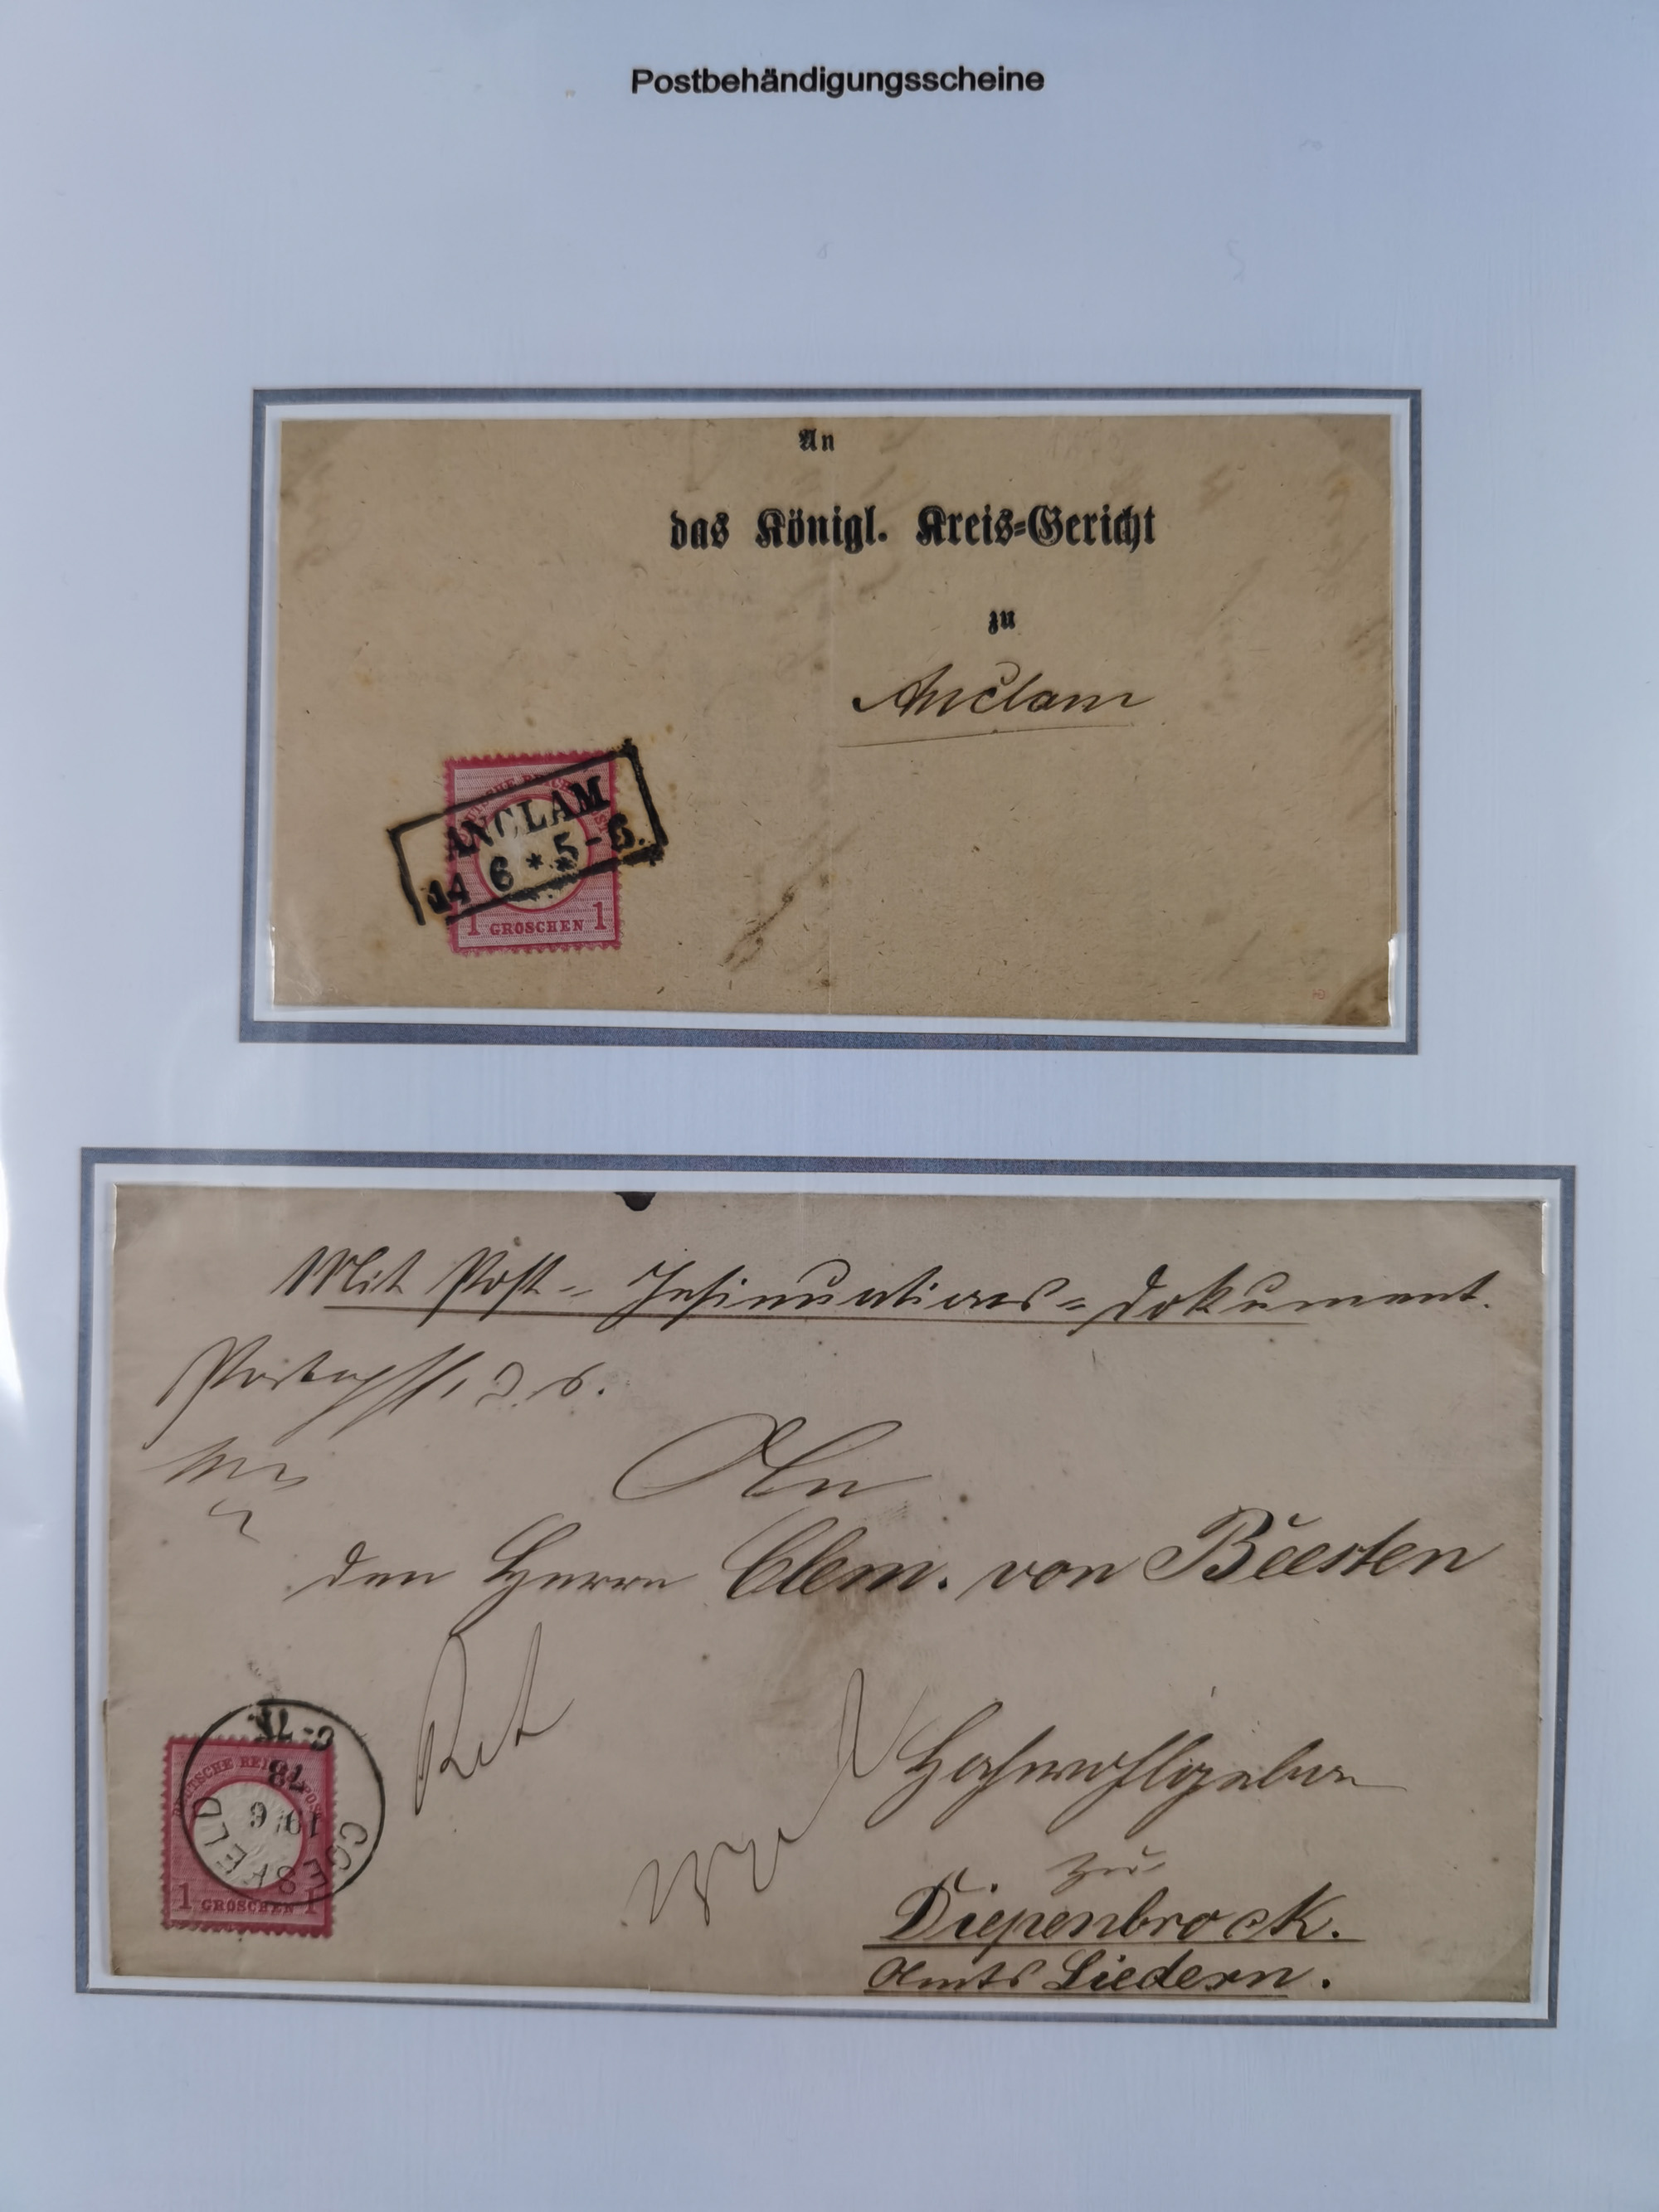 Postbehändigungsscheine
An
das Königl. Kreis-Gericht
zu
Anclam
DEUTSCHE REICHS POST
ANCLAM
14 6 * 5-6.
1 GROSCHEN 1
Mit Post-Insinuations-Dokument.
An
den Herrn Clem. von Beesten
Hochwohlgeboren
zu
Diepenbrock.
Amts Liedern.
DEUTSCHE REICHS POST
COESFELD
1 GROSCHEN 1